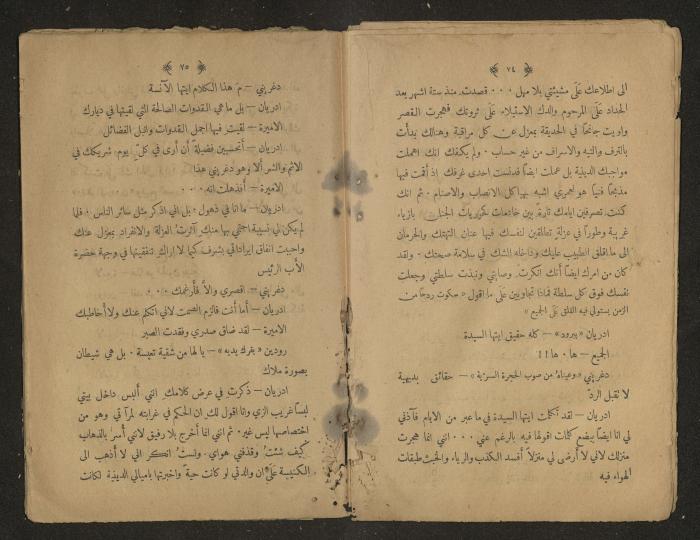 ٧٤
الى اطلاعك على مشيئتي بلا مهل ۰۰۰ قصدت منذ ستة اشهر بعد
الحداد على المرحوم والدك الاستيلاء على ثروتك فهجرت القصر
واويت جانحًا في الحديقة بمعزل عن كل مراقبة وهنالك بدأت
بالترف والتيه والاسراف من غير حساب ۰ ولم يكفك انك اهملت
مواجبك الدينية بل عملت ايضًا فدنست احدى غرفك اذ أقمت فيها
مذبحًا فنيا هو لعمري اشبه بهياكل الانصاب والاصنام ۰ ثم انك
كنت تصرفين ايامك تارة بين خادمات كحوريات الجنان بازياء
غريبة وطورًا في عزلة تطلقين لنفسك فيها عنان التهتك والحرمان
الى ما اقلق الطبيب عليك وداخله الشك في سلامة صحتك ۰ ولقد
كان من امرك ايضًا أنك انكرت وصايتي ونبذت سلطتي وجعلت
نفسك فوق كل سلطة فماذا تجاوبين على ما اقول « سكوت ردحًا من
الزمن يستولي فيه القلق على الجميع »
ادريان « ببرود » — كله حقيق ايتها السيدة
الجميع — ها ۰ ها !!
دغريني « وعيناه من صوب الحجرة السرية » — حقائق بديهية
لا تقبل الردّ
ادريان — لقد تكلمت ايتها السيدة في ما عبر من الايام فآذني
لي انا ايضًا ببضع كلمات اقولها فيه بالرغم عني ۰۰۰ انني انما هجرت
منزلك لاني لا أرضى لي منزلاً أفسد الكذب والرياء والخبث طبقات
الهواء فيه
٧٥
دغريني — مَ هذا الكلام ايتها الآنسة
ادريان — بل ما هي القدوات الصالحة التي لقيتها في ديارك
الاميرة — لقيت فيها اجمل القدوات وانبل الفضائل
ادريان — أتحسبين فضيلةً أن أرى في كلّ يوم شريكك في
الاثم والشر ألا وهو دغريني هذا
الاميرة — أفذهلت انه ۰۰۰
ادريان — ما انا في ذهول ۰ بل اني اذكر مثل سائر الناس ۰ فلما
لم يكن لي نسيبة احتمي بها منك آثرت العزلة والانفراد بمعزل عنك
واحببت انفاق ايراداتي بشرف كيما لا اراك تنفقينها في وجهة حضرة
الأب الرئيس
دغريني — اقصري والاّ فأرغمك ۰۰۰
ادريان — أما أنت فالزم الصمت لاني اتكلم عنك ولا أخاطبك
الاميرة — لقد ضاق صدري وفقدت الصبر
رودين « يفرك يديه » — يالها من شقية تعيسة ۰ بل هي شيطان
بصورة ملاك
ادريان — ذكرت في عرض كلامك انني ألبس داخل بيتي
لبسًا غريب الزي وانا اقول لك ان الحكم في غرابته لمرآتي وهو من
اختصاصها ليس غير ۰ ثم انني انما أخرج بلا رفيق لانني أسرّ بالذهاب
كيف شئت وقذفني هواي ۰ ولست انكر اني لا أذهب الى
الكنيسة على ان والدتي لو كانت حية واخبرتها باميالي الدينية لكانت